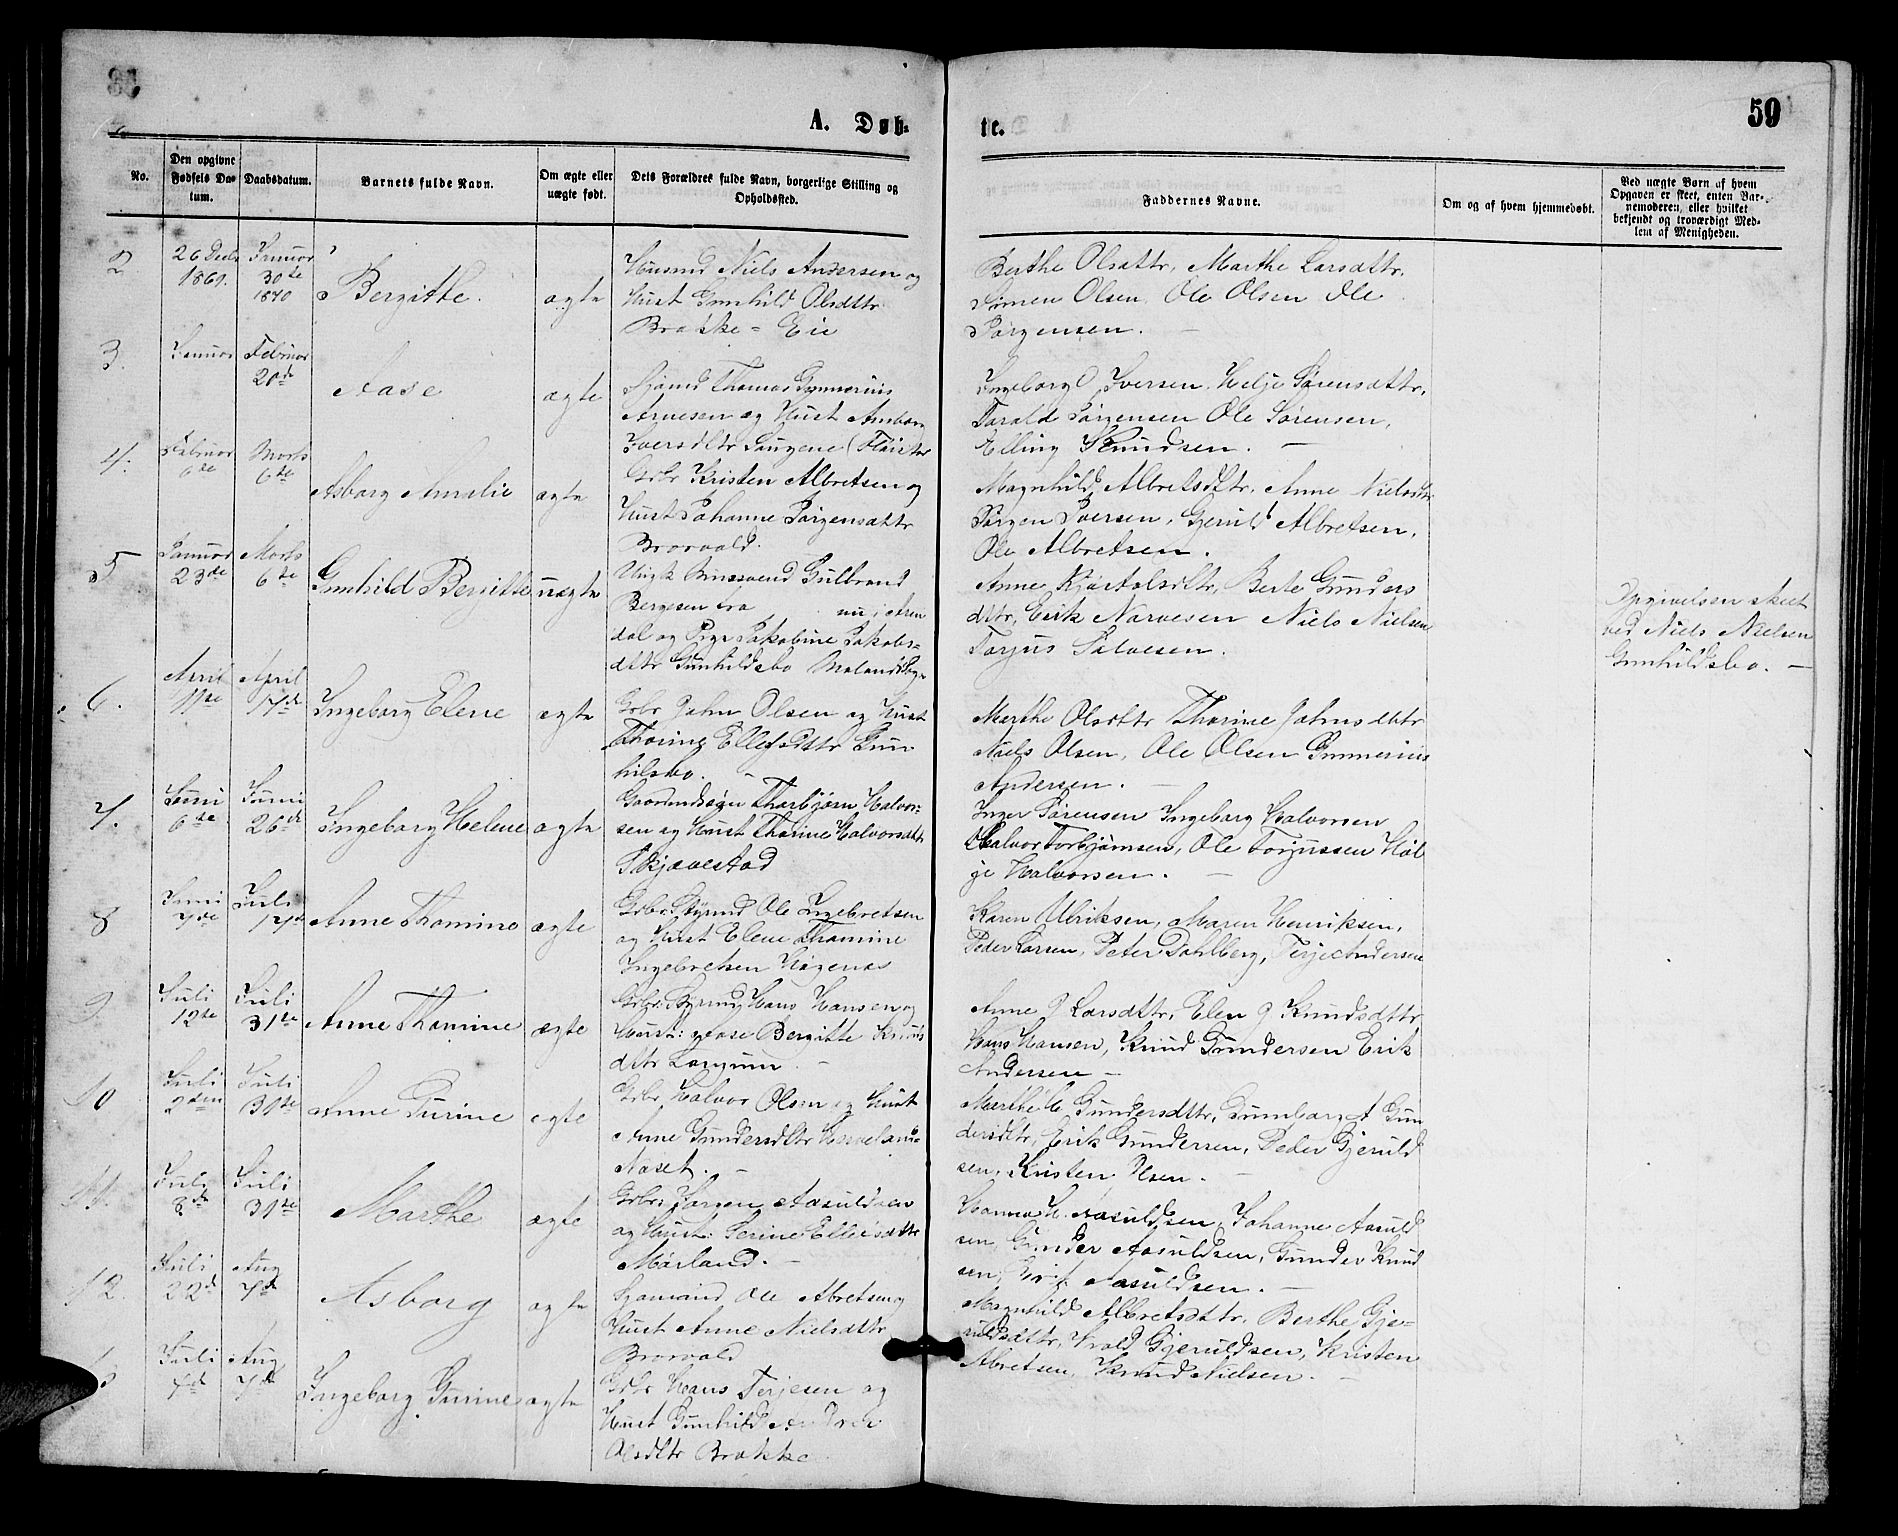 A. Døb-
te.
59
No.
Den opgivne Fødsels Da-tum.
Daabsdatum.
Barnets fulde Navn.
Om ægte eller uægte født.
Dets Forældres fulde Navn, borgerlige Stilling og Opholdssted.
Faddernes Navne.
Om og af hvem hjemmedøbt.
Ved uægte Børn af hvem Opgaven er skeet, enten Bar-nemoderen, eller hvilket bekjendt og troværdigt Med-lem af Menigheden.
2.
26
1869.
Januar
30te
1870
Bergitthe.
ægte
Husmd Niels Andersen og
Hust Gunhild Olsdttr
Brøske = Eie
Berthe Olsdttr, Marthe Larsdttr,
Simen Olsen, Ole Olsen Ole
Jørgensen.
3.
Januar
Februar
20de
Aase
ægte
Sjømd Thomas Gunnerius
Arnesen og Hust Amborg
Iversdttr
Ingeborg Iversen, Helje Sørensdttr,
Tarald Jørgensen Ole Sørensen,
Elling Knudsen. —
4.
Februar
6te
Marts
6te
Asborg Amalie
ægte
Grbr Kristen Albretsen og
Hust Johanne Jørgensdttr
Brorvold.
Magnhild Albretsdttr, Anne Nielsdttr
Jørgen Iversen, Gjeruld Albretsen,
Ole Albretsen.
5
Januar
23de
Marts
6te
Gunhild Bergitte
uægte
Ungk Gulbrand
Bergesen fra nu i Aren
dal og Pige Jakobine Jakobs=
dttr Gunhildsbo
Anne Kjøstolsdttr, Berte Gunders
dttr, Erik Narvesen Niels Nielsen
Torjus Salvesen.
Opgivelsen skeet
ved Niels Nielsen
Gunhildsbo. —
6.
April
11te
April
17de
Ingeborg Elene
ægte
Grbr John Olsen og Hust
Thorine Ellefsdttr Gun
hilsbo. —
Marthe Olsdttr Thorine Johnsdttr
Niels Olsen, Ole Olsen Gunnerius
Andersen. —
7.
Juni
6te
Juni
26de
Ingeborg Helene
ægte
Gaardmdssøn Thorbjørn Halvor-
sen og Hust Thorine Halvorsdttr
Skjævestad
Inger Sørensen Ingeborg Halvorsen
Halvor Torbjørnsen, Ole Torjussen Hel
je Halvorsen. —
8
Juni
7de
Juli
17de
Anne Thomine
ægte
Grbr: Styrmd Ole Ingebretsen
og Hust Elene Thomine
Ingebretsen Hagenæs
Karen Ulriksen, Maren Henriksen,
Peder Larsen, Peter Dahlberg, Terje Andersen
9
Juli
12te
Juli
31te
Anne Thomine
ægte
Grbr: Styrmd Hans Hansen og
Hust: Aase Bergitte Knuds
dttr Langum —
Anne J Larsdttr, Elen J Knudsdttr
Hans Hansen, Knud Gundersen Erik
Andersen —
10
Juli
2den
Juli
31te
Anne Gurine
ægte
Grbr Halvor Olsen og Hust
Anne Gundersdttr
Næset. —
Marthe H Gundersdttr, Gunborg A Gun
dersdttr, Erik Gundersen, Peder Gjeruld
sen, Kristen Olsen. —
11.
Juli
8de
Juli
31te
Marthe
ægte
Grbr: Jørgen Aasuldsen
og Hust: Serine Ellefsdttr
Mørland. —
Hanna H. Aasuldsen, Johanne Aasuld
sen, Gunder Aasuldsen, Gunder Knud
sen, Erik Aasuldsen. —
12.
Juli
22de
Aug
7de
Asborg
ægte
Sjømand Ole Albretsen og
Hust Anne Nielsdttr
Brorvold
Magnhild Albretsdttr, Berthe Gje-
ruldsdttr, Gjeruldsen, Kristen
Abretsen, Knud Nielsen. —
13
Juli
7de
Aug
7de
Ingeborg Gurine
ægte
Grbr Hans Terjesen og
Hust Gunhild Andrea
Olsdttr Brøkke.